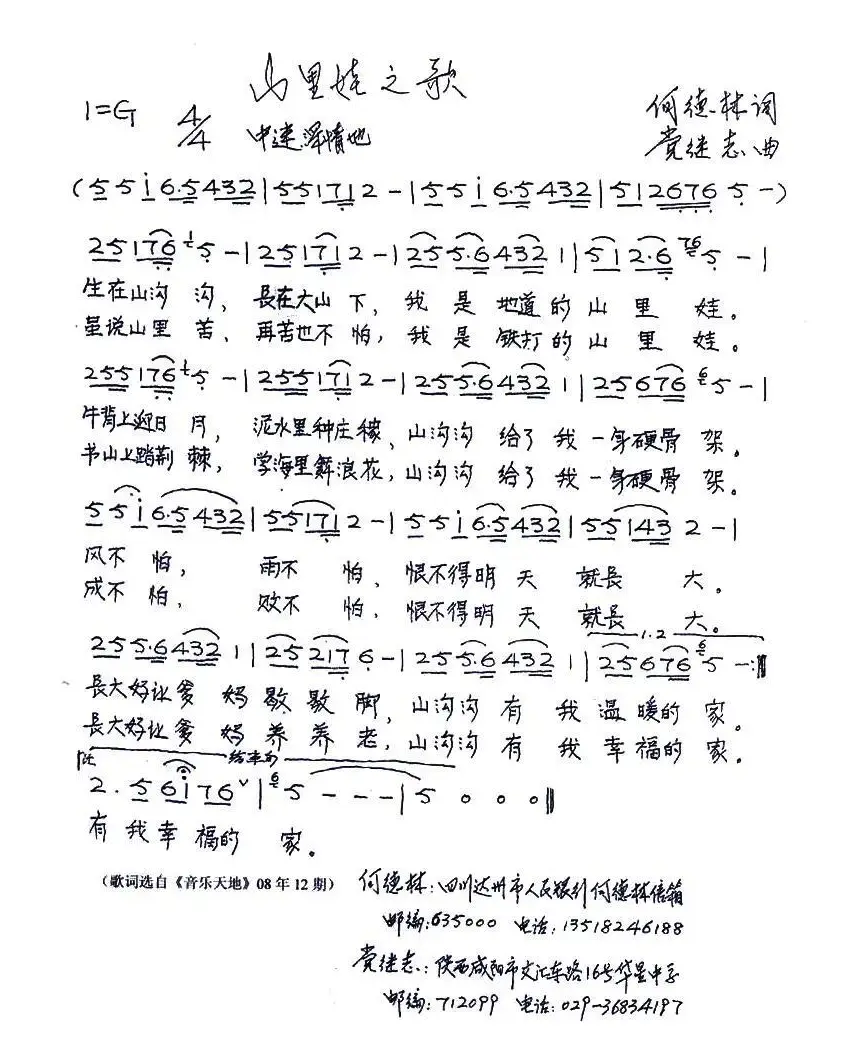 山里娃之歌
1=G 4/4 中速 深情地
何德林词
党继志曲
(5 5 i 6·5 4 3 2 | 5 5 1 7 1 2 - | 5 5 i 6·5 4 3 2 | 5 1 2 6 7 6 5 - )
2 5 1 7 6 1 5 - | 2 5 1 7 1 2 - | 2 5 5·6 4 3 2 1 | 5 1 2·6 76 5 - |
生在山沟 沟，長在大山 下，我 是 地道的 山 里 娃。
虽说山里 苦、再苦也不 怕，我 是 铁打的 山 里 娃。
2 5 5 1 7 6 1 5 - | 2 5 5 1 7 1 2 - | 2 5 5·6 4 3 2 1 | 2 5 6 7 6 6 5 - |
牛背上迎日 月，泥水里种庄稼、山沟沟 给了 我 一身硬骨 架。
书山上踏荆 棘，学海里舞浪花，山沟沟 给了 我 一身硬骨 架。
5 5 i 6·5 4 3 2 | 5 5 1 7 1 2 - | 5 5 i 6·5 4 3 2 | 5 5 1 4 3 2 - |
风不 怕， 雨不 怕、恨不得明 天 就長 大。
成不 怕、 败不 怕、恨不得明 天 就長 大。
1.2
2 5 5·6 4 3 2 1 | 2 5 2 1 7 6 - | 2 5 5·6 4 3 2 1 | 2 5 6 7 6 6 5 - :‖
長大好让爹 妈 歇 歇 脚，山沟沟 有 我 温 暖的 家。
長大好让爹 妈 养 养 老，山沟沟 有 我 幸 福的 家。
结束句
2 · 5 6 i 7 6 ∨ | 6 5 - - - | 5 0 0 0 ‖
有 我 幸 福的 家。
（歌词选自《音乐天地》08年12期）
何德林：四川达州市人民银行何德林信箱
邮编：635000 电话：13518246188
党继志：陕西咸阳市文汇东路16号华星中学
邮编：712099 电话：029-36834197